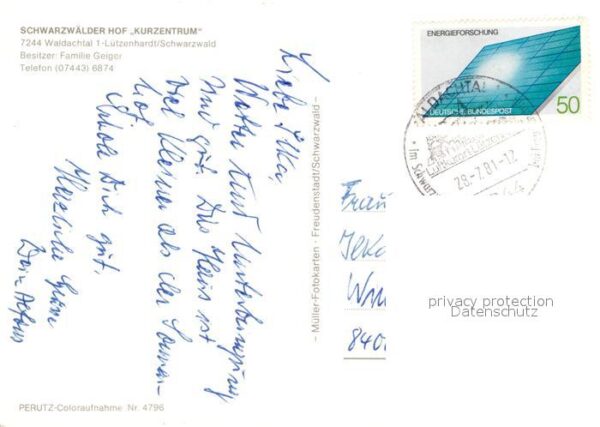 SCHWARZWÄLDER HOF „KURZENTRUM"
7244 Waldachtal 1-Lützenhardt/Schwarzwald
Besitzer: Familie Geiger
Telefon (07443) 6874
Liebe Ilka,
Wetter und Unterbringung
sind gut. Das Haus ist
viel kleiner als der Sonnen-
hof.
Erhole Dich gut,
Herzliche Grüsse
Dein
– Müller-Fotokarten · Freudenstadt/Schwarzwald –
ENERGIEFORSCHUNG
DEUTSCHE BUNDESPOST
50
WALDACHTAL
28.-7.81-12
im Schwarz
Frau
Ilka
840
privacy protection
Datenschutz
PERUTZ-Coloraufnahme Nr. 4796